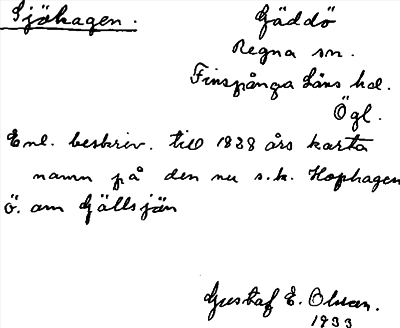 Sjöhagen.
Gäddö
Regna sn.
Finspånga Läns hd.
Ögl.
Enl. beskriv. till 1838 års karta
namn på den nu s.k. Hophagen
ö. om Gällsjön
Gustaf E. Olsson.
1933